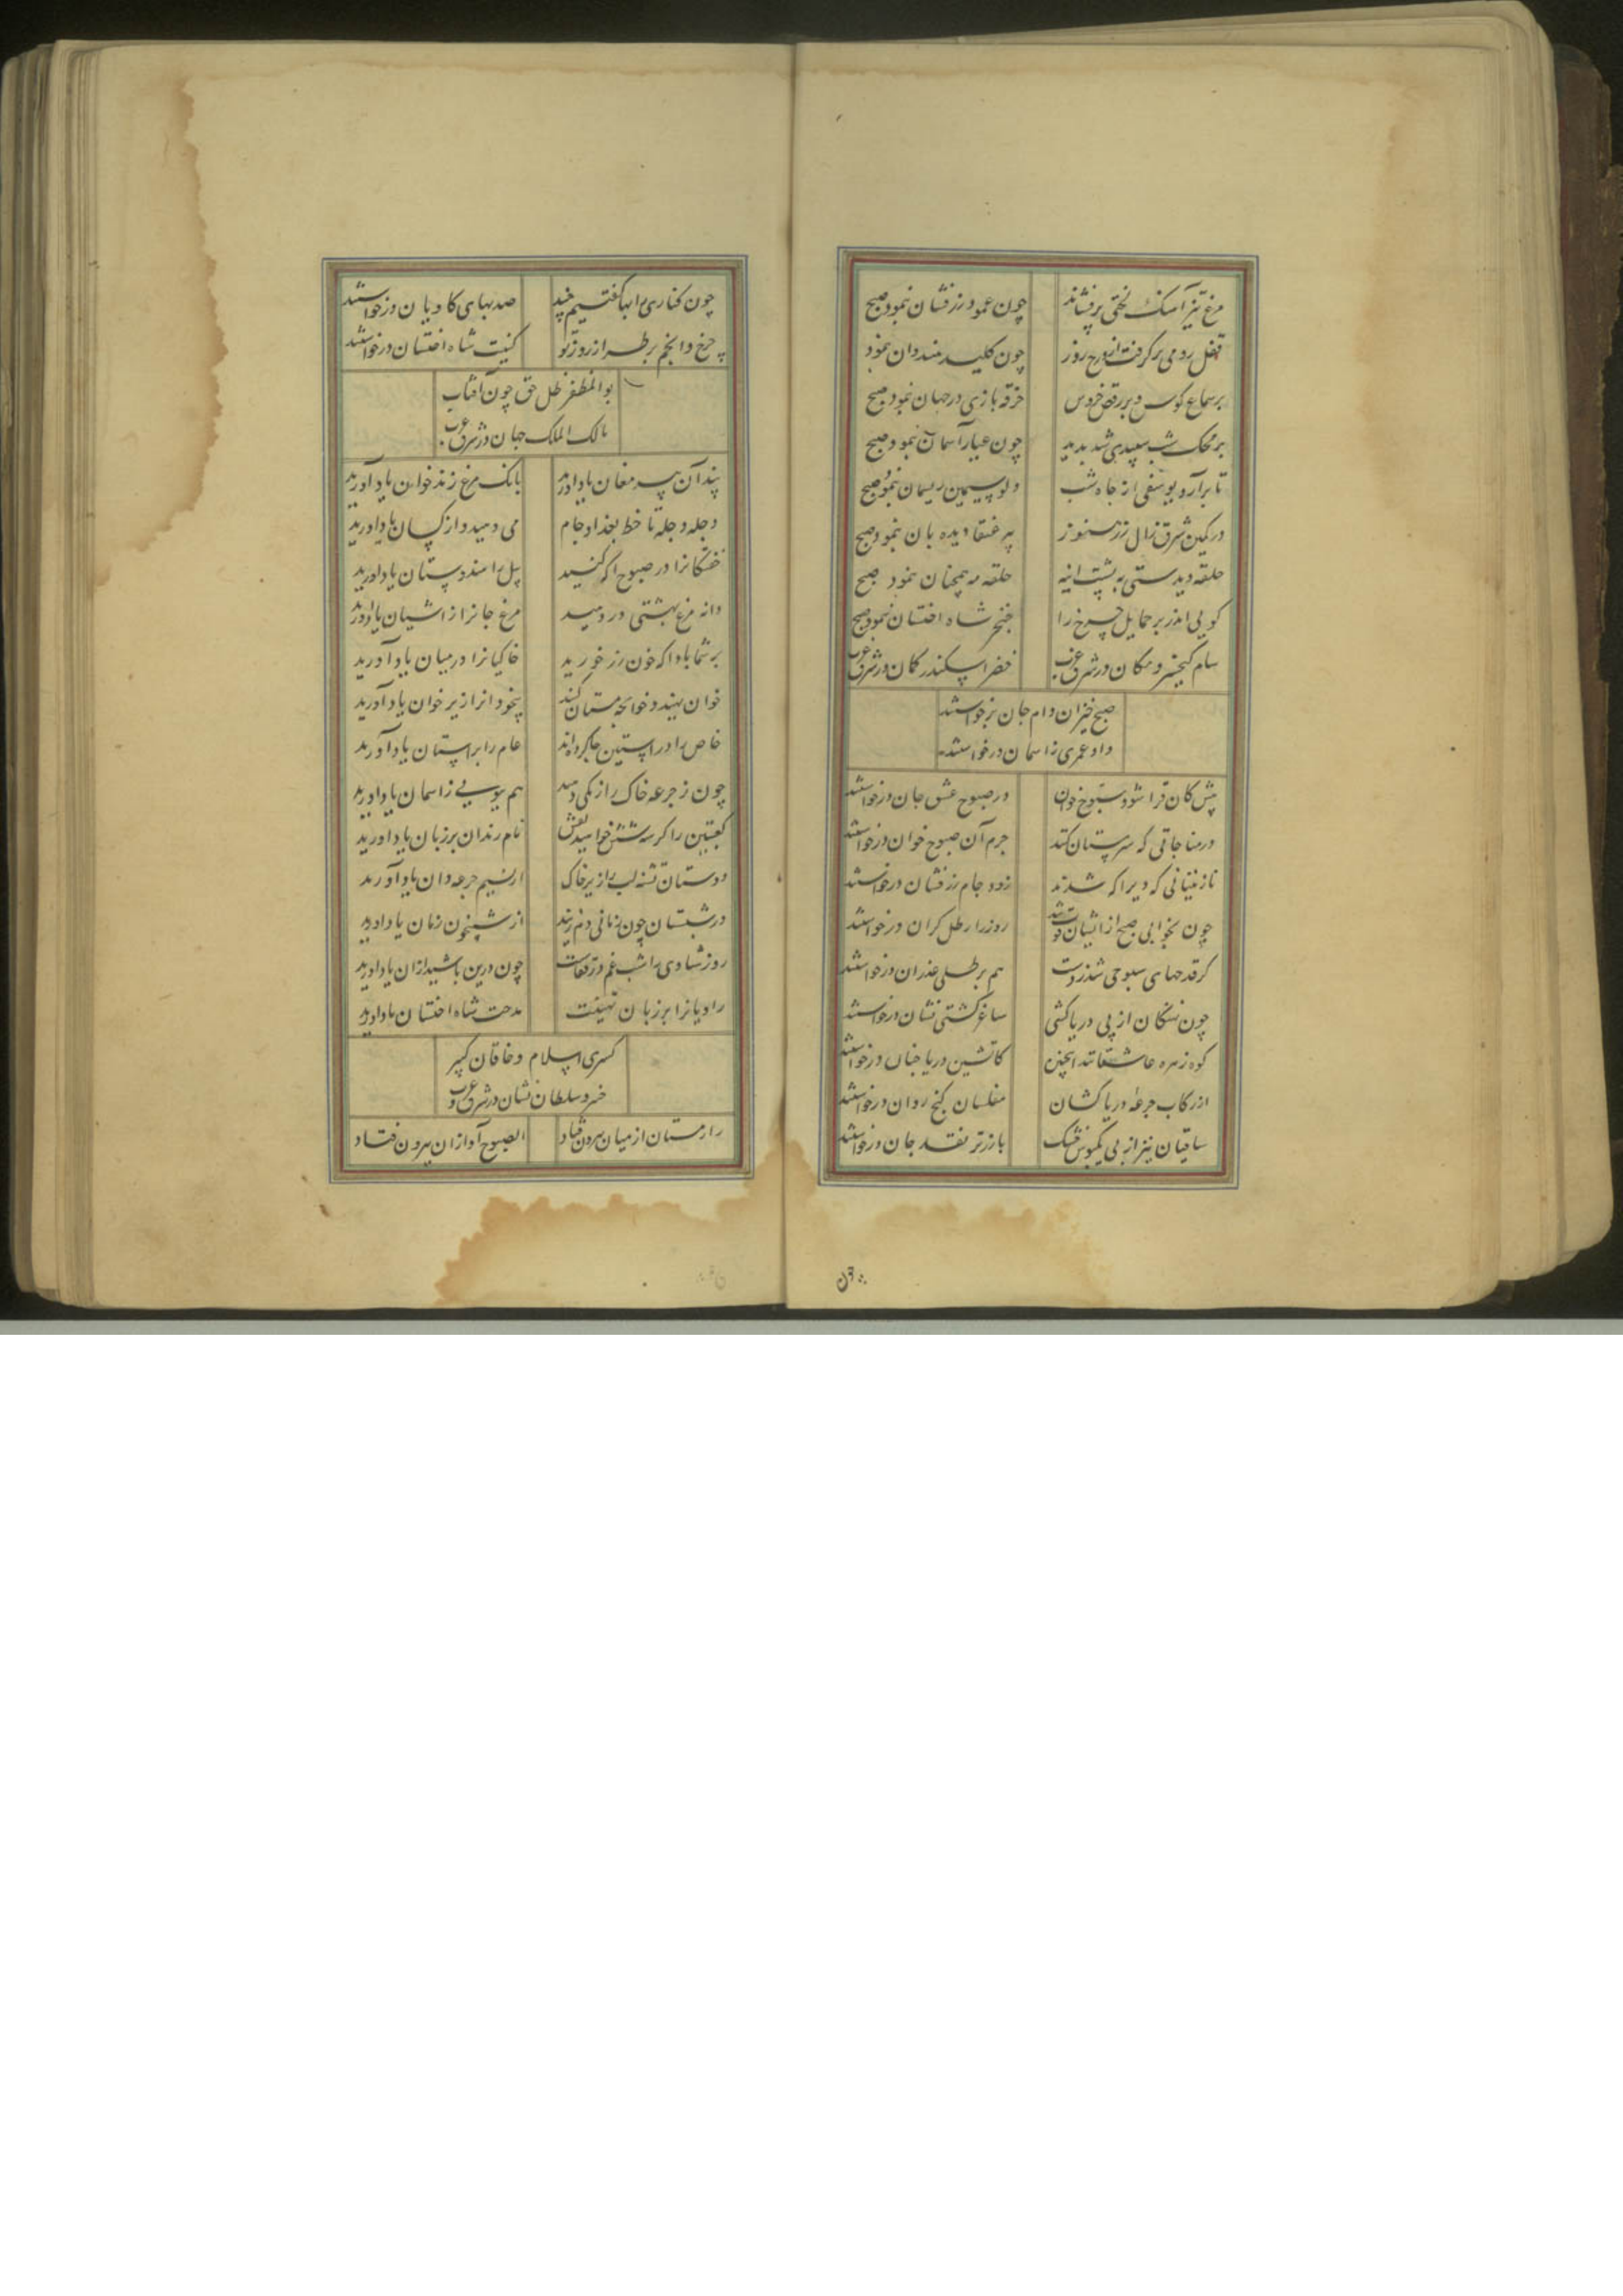 مرغ تیز آهنگ لختی پر فشاند
چون عمود زرفشان بنمود صبح
قفل رومی برگرفت از درج روز
چون کلید هندوان بنمود
بر سماع کوس و بر رقص خروس
خرقه بازی در جهان بنمود صبح
بر محک شب سپیدی شد پدید
چون عیار آسمان بنمود صبح
تا برآرد یوسفی از چاه شب
دلو سیمین ریسمان بنمود صبح
در کمین شرق زال زر هنوز
پر عنقا دیده بان بنمود صبح
حلقه دیدستی به پشت آینه
حلقه مه همچنان بنمود صبح
گویی اندر بر حمایل چرخ را
خنجر شاه اخستان بنمود صبح
سام کیخسرو مکان در شرق و غرب
خضر اسکندر کمان در شرق و غرب
صبح خیزان وام جان درخواستند
داد عمری ز آسمان درخواستند
پیش کان قرا شود سبوح خوان
در صبوح عیش جان درخواستند
در مناجاتی که سرمستان کنند
جرم آن صبوح خوان درخواستند
نازنینانی که دیر آگه شدند
زود جام زرفشان درخواستند
چون بخوابی صبح ازیشان فوت شد
روز را رطل گران درخواستند
گر قدحهای صبوحی شد ز دست
هم برطلی عذر آن درخواستند
چون نهنگان از پی دریاکشی
ساغر کشتی نشان درخواستند
کوه زهره عاشقانند اینچنین
کاتشین دریا چنان درخواستند
از رکاب جرعه دریاکشان
مفلسان گنج روان درخواستند
ساقیان نیز از پی یکبوس خشک
باز زر تر نقد جان درخواستند
چون
چون کناری را بها گفتیم چند
صد بهای کاویان درخواستند
چرخ و انجم بر طراز روز نو
کنیت شاه اخستان درخواستند
بوالمظفر ظل حق چون آفتاب
مالک الملک جهان در شرق و غرب
پند آن پیر مغان یاد آورید
بانگ مرغ زند خوان یاد آورید
دجله دجله تا خط بغداد جام
می دهید و از کسان یاد آورید
خفتگان را در صبوح آگه کنید
پیل را هندوستان یاد آورید
دانه مرغ بهشتی در دهید
مرغ جان را از آشیان یاد آورید
بر شما بادا که خون رز خورید
خاکیان را در میان یاد آورید
خوان نهید و خوانچه مستان کنید
بیخودان را زیر خوان یاد آورید
خاص را در آستین جا کرده اند
عام را بر آستان یاد آورید
چون ز جرعه خاک را رنگی دهید
هم بویی ز آسمان یاد آورید
کعبتین را گر سه شش خواهید نقش
نام رندان بر زبان یاد آورید
دوستان تشنه لب را زیر خاک
از نسیم جرعه دان یاد آورید
در شبستان چون زمانی دم زنید
از شبیخون زمان یاد آورید
روز شادی را شب غم در قفاست
چون درین باشید از آن یاد آورید
راویان را بر زبان تهنیت
مدحت شاه اخستان یاد آورید
کسری اسلام و خاقان کبیر
خسرو سلطان نشان در شرق و غرب
راز مستان از میان بیرون فتاد
الصبوح آواز آن بیرون فتاد